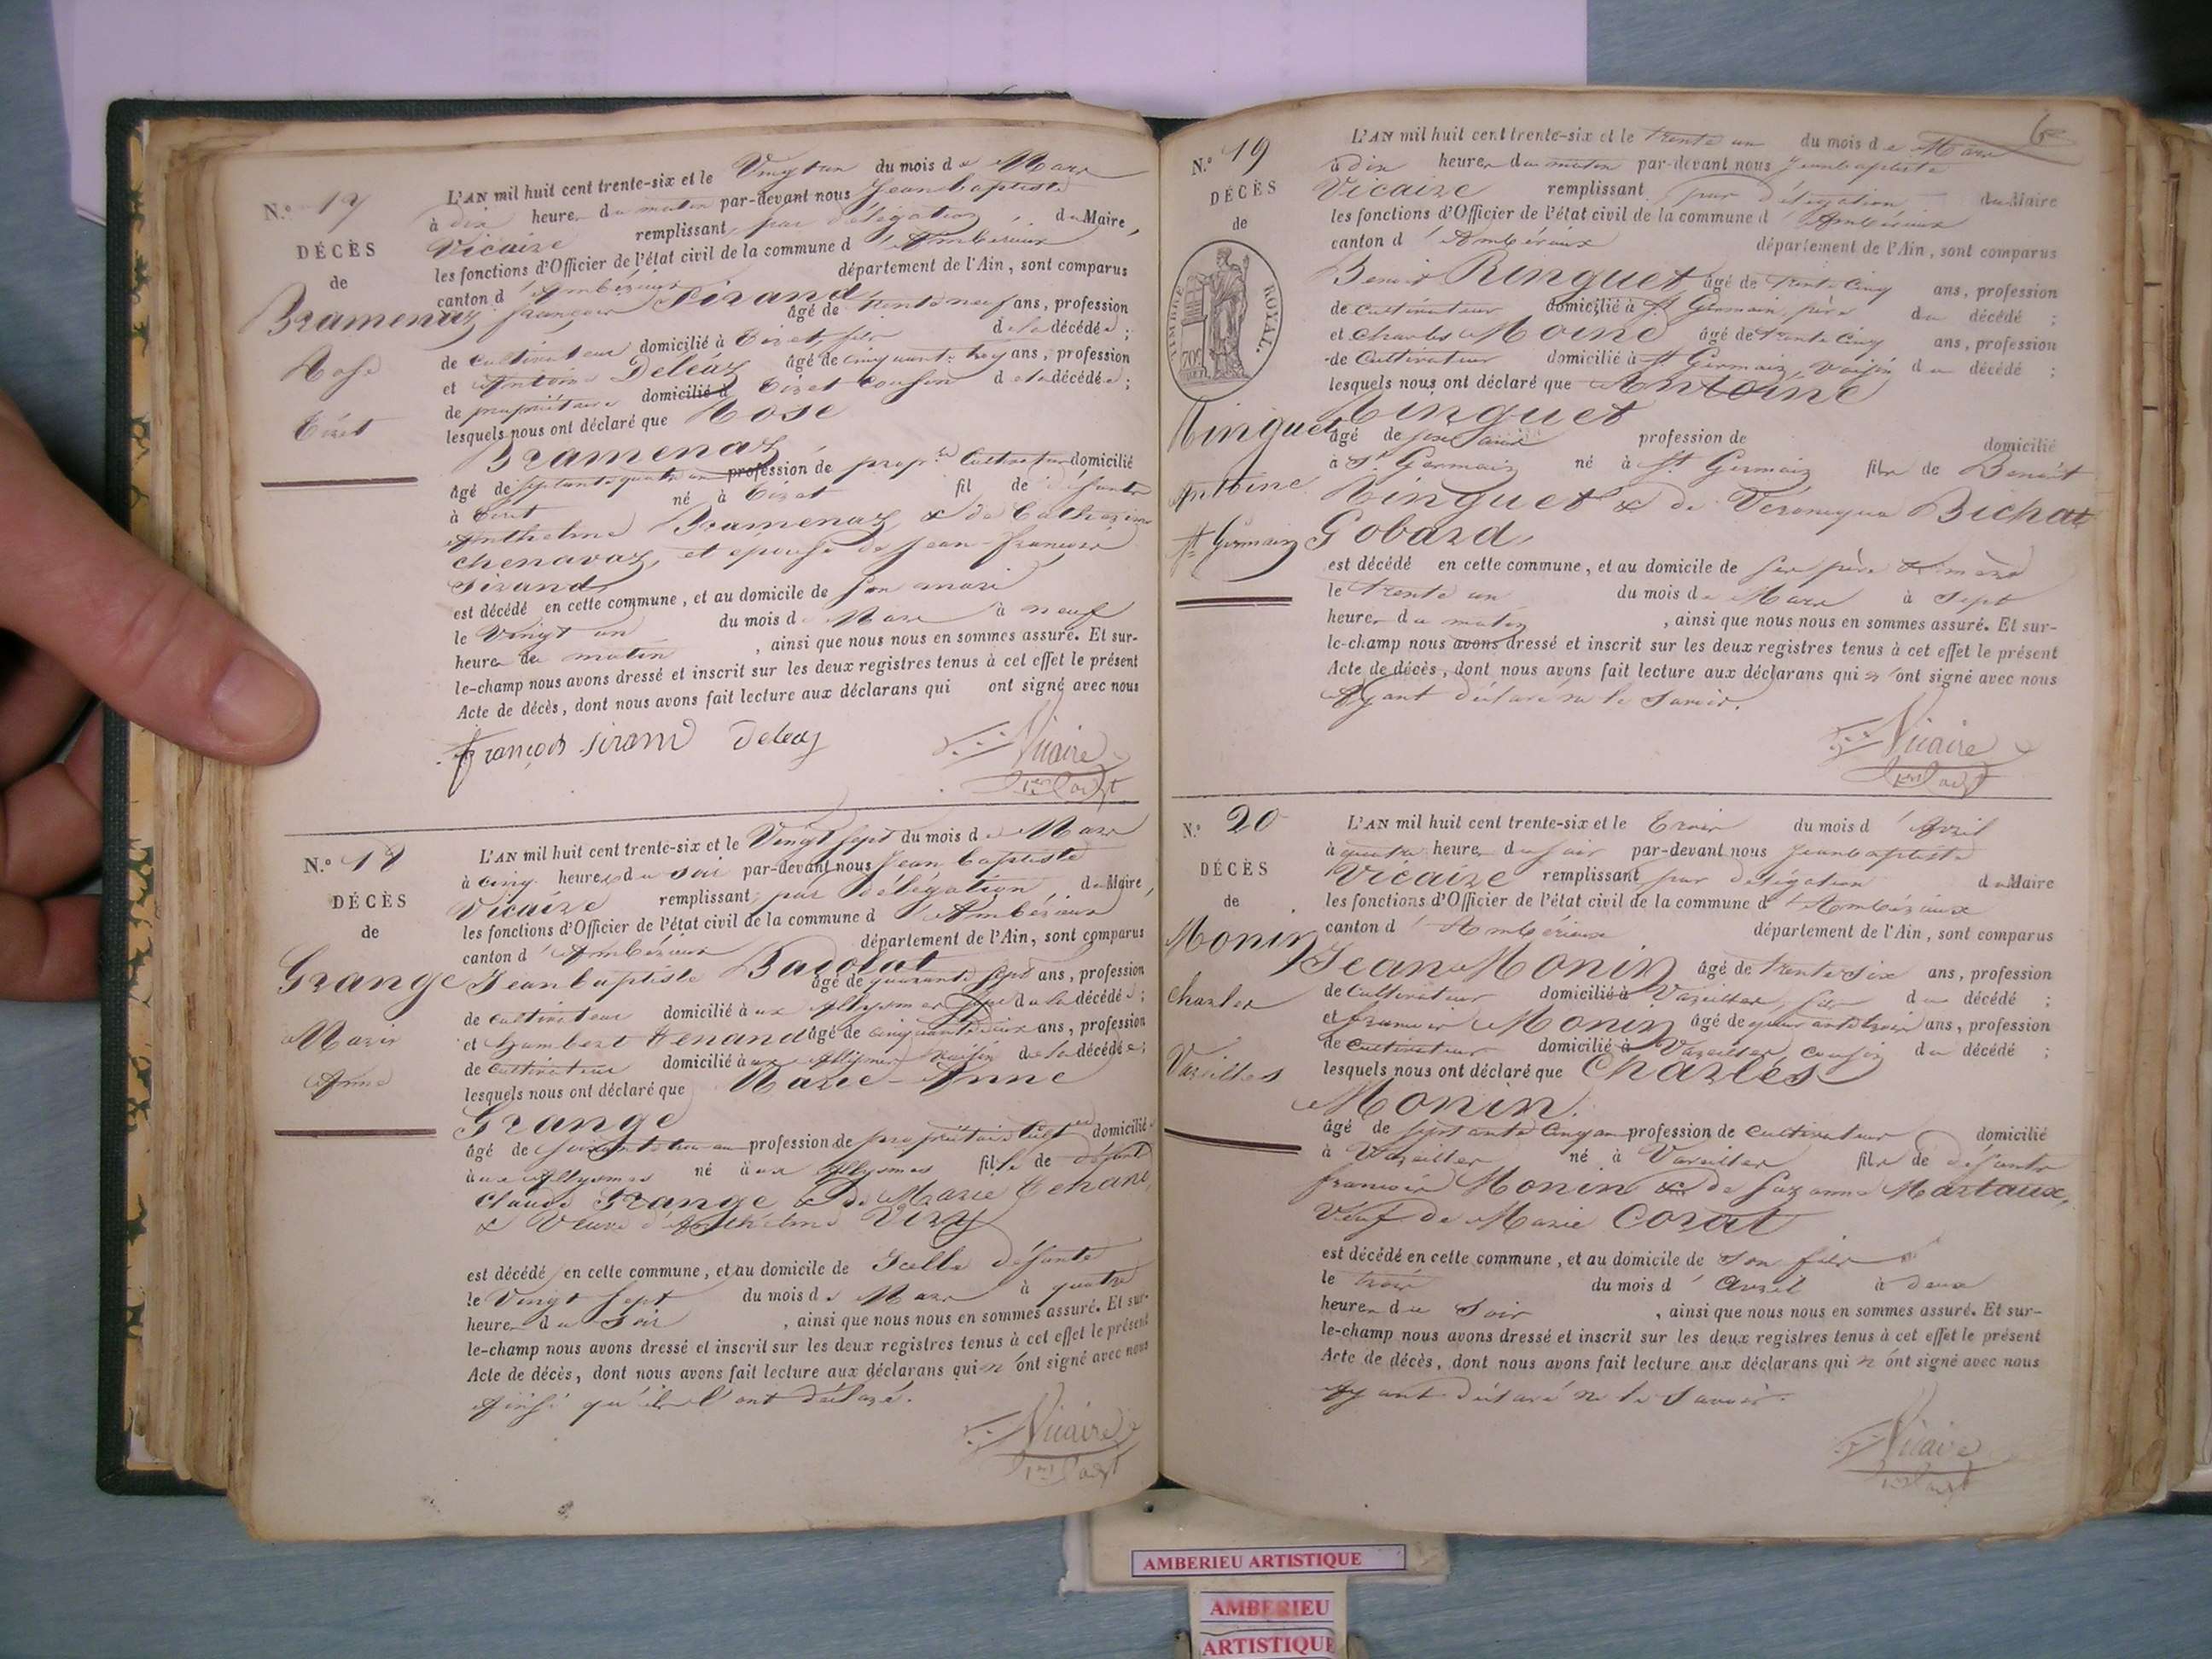 N.º 17
DÉCÈS
de
Bramenaz
Rose
Tiret
L'AN mil huit cent trente-six et le Vingt un du mois de Mars
à dix heures du matin par-devant nous Jean baptiste
Vicaire remplissant par délégation du Maire,
les fonctions d'Officier de l'état civil de la commune d'Ambérieux
canton d'Ambérieux département de l'Ain, sont comparus
françois Sirand âgé de trente neuf ans, profession
de cultivateur domicilié à Tiret, fils de la décédée;
et Antoine Deléaz âgé de cinquante trois ans, profession
de propriétaire domicilié à Tiret cousin de la décédée;
lesquels nous ont déclaré que Rose
Bramenaz
âgé de septante quatre ans profession de propre. Cultivateur domicilié
à Tiret né à Tiret fil de défunts
Anthelme Bramenaz & de Catherine
Chenavaz, et épouse de Jean-françois
Sirand
est décédé en cette commune, et au domicile de son mari
le Vingt un du mois de Mars à neuf
heures du matin, ainsi que nous nous en sommes assuré. Et sur-
le-champ nous avons dressé et inscrit sur les deux registres tenus à cet effet le présent
Acte de décès, dont nous avons fait lecture aux déclarans qui ont signé avec nous
françois sirand Deleaz Vicaire
N.º 18
DÉCÈS
de
Grange
Marie
Anne
L'AN mil huit cent trente-six et le Vingt sept du mois de Mars
à cinq heures du soir par-devant nous Jean baptiste
Vicaire remplissant par délégation, du Maire,
les fonctions d'Officier de l'état civil de la commune d'Ambérieux
canton d'Ambérieux département de l'Ain, sont comparus
Jean baptiste Badolat âgé de quarante sept ans, profession
de cultivateur domicilié aux Allysmes de la décédée;
et Lambert Tenand âgé de cinquante deux ans, profession
de cultivateur domicilié aux Allysmes Voisin de la décédée;
lesquels nous ont déclaré que Marie-Anne
Grange
âgé de soixante ans profession de propriétaire Cultr domicilié
aux Allysmes né aux Allysmes fille de défunt
Claude Grange & De Marie Tenand,
& Veuve d'Anthelme Viry
est décédé en cette commune, et au domicile de Icelle défunte
le Vingt sept du mois de Mars à quatre
heures du Soir, ainsi que nous nous en sommes assuré. Et sur-
le-champ nous avons dressé et inscrit sur les deux registres tenus à cet effet le présent
Acte de décès, dont nous avons fait lecture aux déclarans qui n'ont signé avec nous
Ainsi qu'ils l'ont déclaré.
Vicaire
6
N.º 19
DÉCÈS
de
TIMBRE ROYAL.
Ringuet
Antoine
St Germain
L'AN mil huit cent trente-six et le trente un du mois de Mars
à dix heures du matin par-devant nous Jean baptiste
Vicaire remplissant par délégation du Maire
les fonctions d'Officier de l'état civil de la commune d'Ambérieux
canton d'Ambérieux département de l'Ain, sont comparus
Benoit Ringuet, âgé de trente cinq ans, profession
de cultivateur domicilié à St Germain, père du décédé;
et Charles Moine âgé de trente cinq ans, profession
de Cultivateur domicilié à St Germain, voisin du décédé;
lesquels nous ont déclaré que Antoine
Ringuet
âgé de profession de domicilié
à St Germain né à St Germain fils de Benoit
Ringuet & de Véronique Bichat
Gobard,
est décédé en cette commune, et au domicile de ses père & mère
le trente un du mois de Mars à sept
heures du matin, ainsi que nous nous en sommes assuré. Et sur-
le-champ nous avons dressé et inscrit sur les deux registres tenus à cet effet le présent
Acte de décès, dont nous avons fait lecture aux déclarans qui n'ont signé avec nous
Ayant déclaré ne le Savoir.
Vicaire
N.º 20
DÉCÈS
de
Monin
Charles
Vareilles
L'AN mil huit cent trente-six et le Trois du mois d'Avril
à quatre heures du soir par-devant nous Jean baptiste
Vicaire remplissant par délégation du Maire
les fonctions d'Officier de l'état civil de la commune d'Ambérieux
canton d'Ambérieux département de l'Ain, sont comparus
Jean Monin âgé de trente six ans, profession
de Cultivateur domicilié à Vareilles, fils du décédé;
et françois Monin âgé de quarante trois ans, profession
de cultivateur domicilié à Vareilles cousin du décédé;
lesquels nous ont déclaré que Charles
Monin.
âgé de septante cinq ans profession de cultivateur domicilié
à Vareilles né à Vareilles fils de défunts
françois Monin & de Suzanne Martaux,
Veuf de Marie Corat
est décédé en cette commune, et au domicile de Son fils
le trois du mois d'Avril à deux
heures du Soir, ainsi que nous nous en sommes assuré. Et sur-
le-champ nous avons dressé et inscrit sur les deux registres tenus à cet effet le présent
Acte de décès, dont nous avons fait lecture aux déclarans qui n'ont signé avec nous
Ayant déclaré ne le Savoir.
Vicaire
AMBERIEU ARTISTIQUE
AMBERIEU
ARTISTIQUE